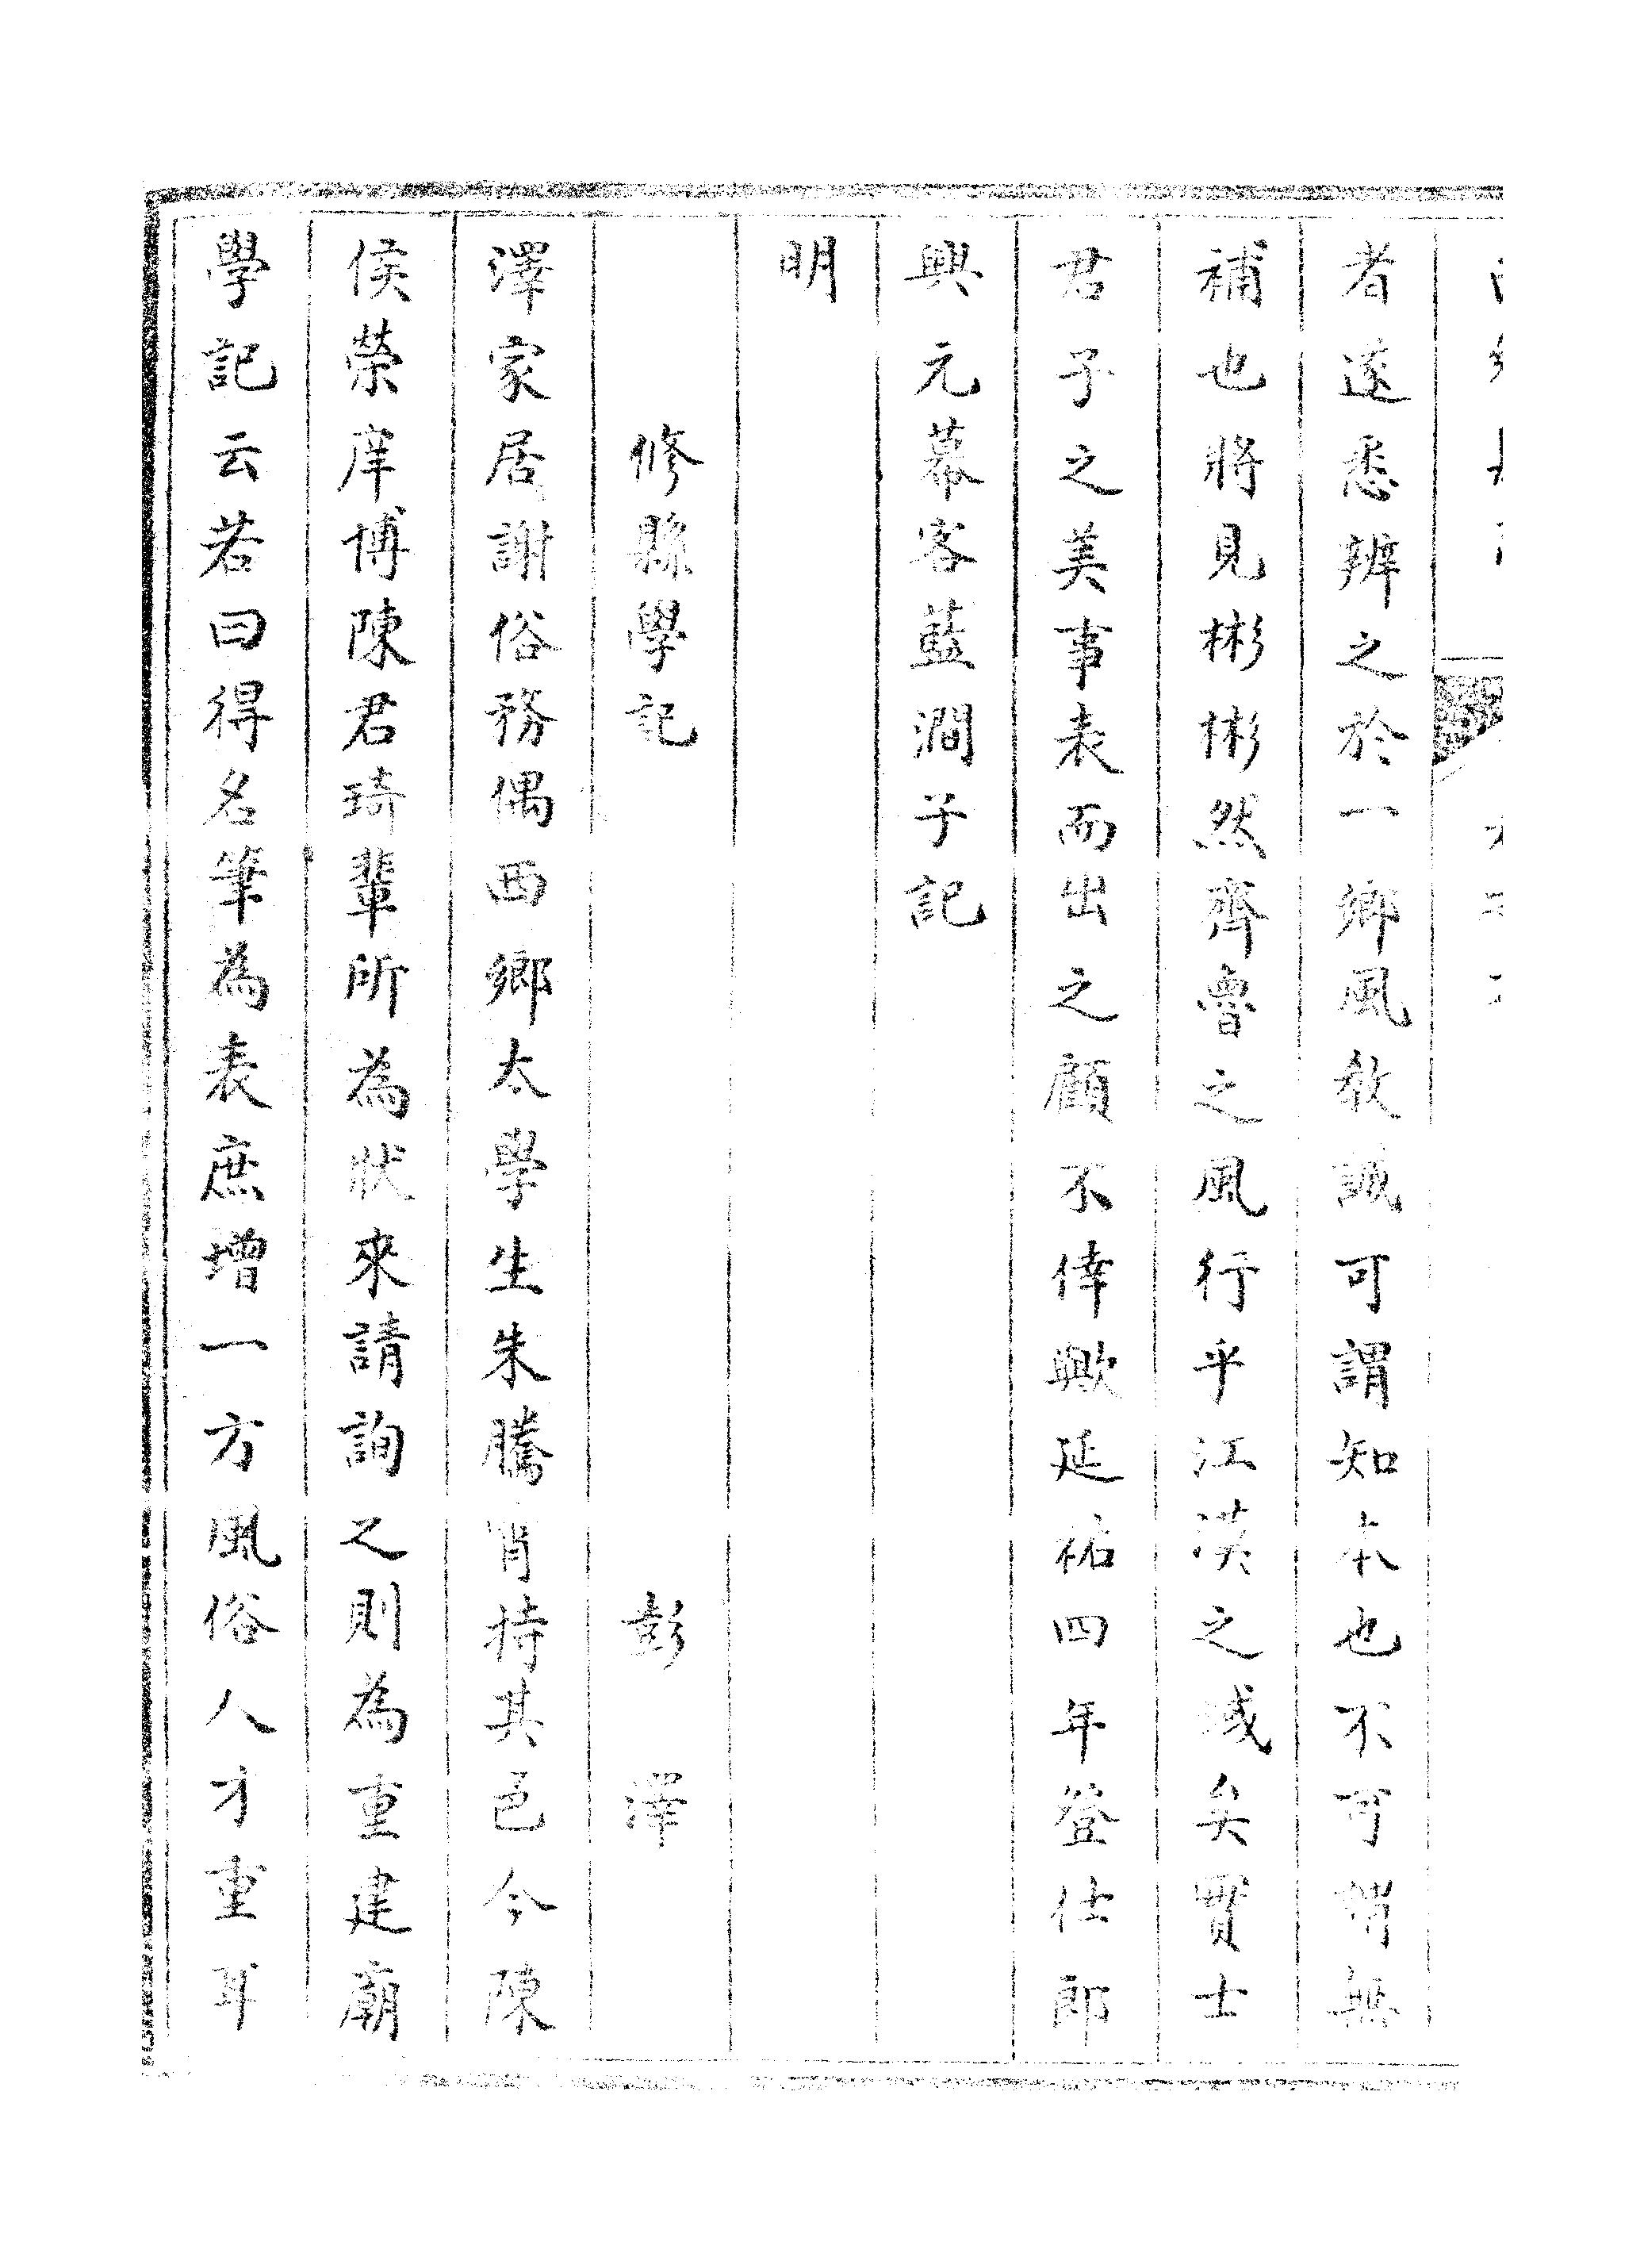 者遂悉辨之於一鄉風教誠可謂知本也不可謂無
補也將見彬彬然齊魯之風行乎江漢之域矣賈士
君子之美事表而出之顧不倖歟延祐四年登仕郎
興元幕客藍澗子記
明
修縣學記 彭澤
澤家居謝俗務偶西鄉太學生朱騰霄持其邑令陳
侯榮庠博陳君琦輩所為狀來請詢之則為重建廟
學記云若曰得名筆為表庶增一方風俗人才重耳